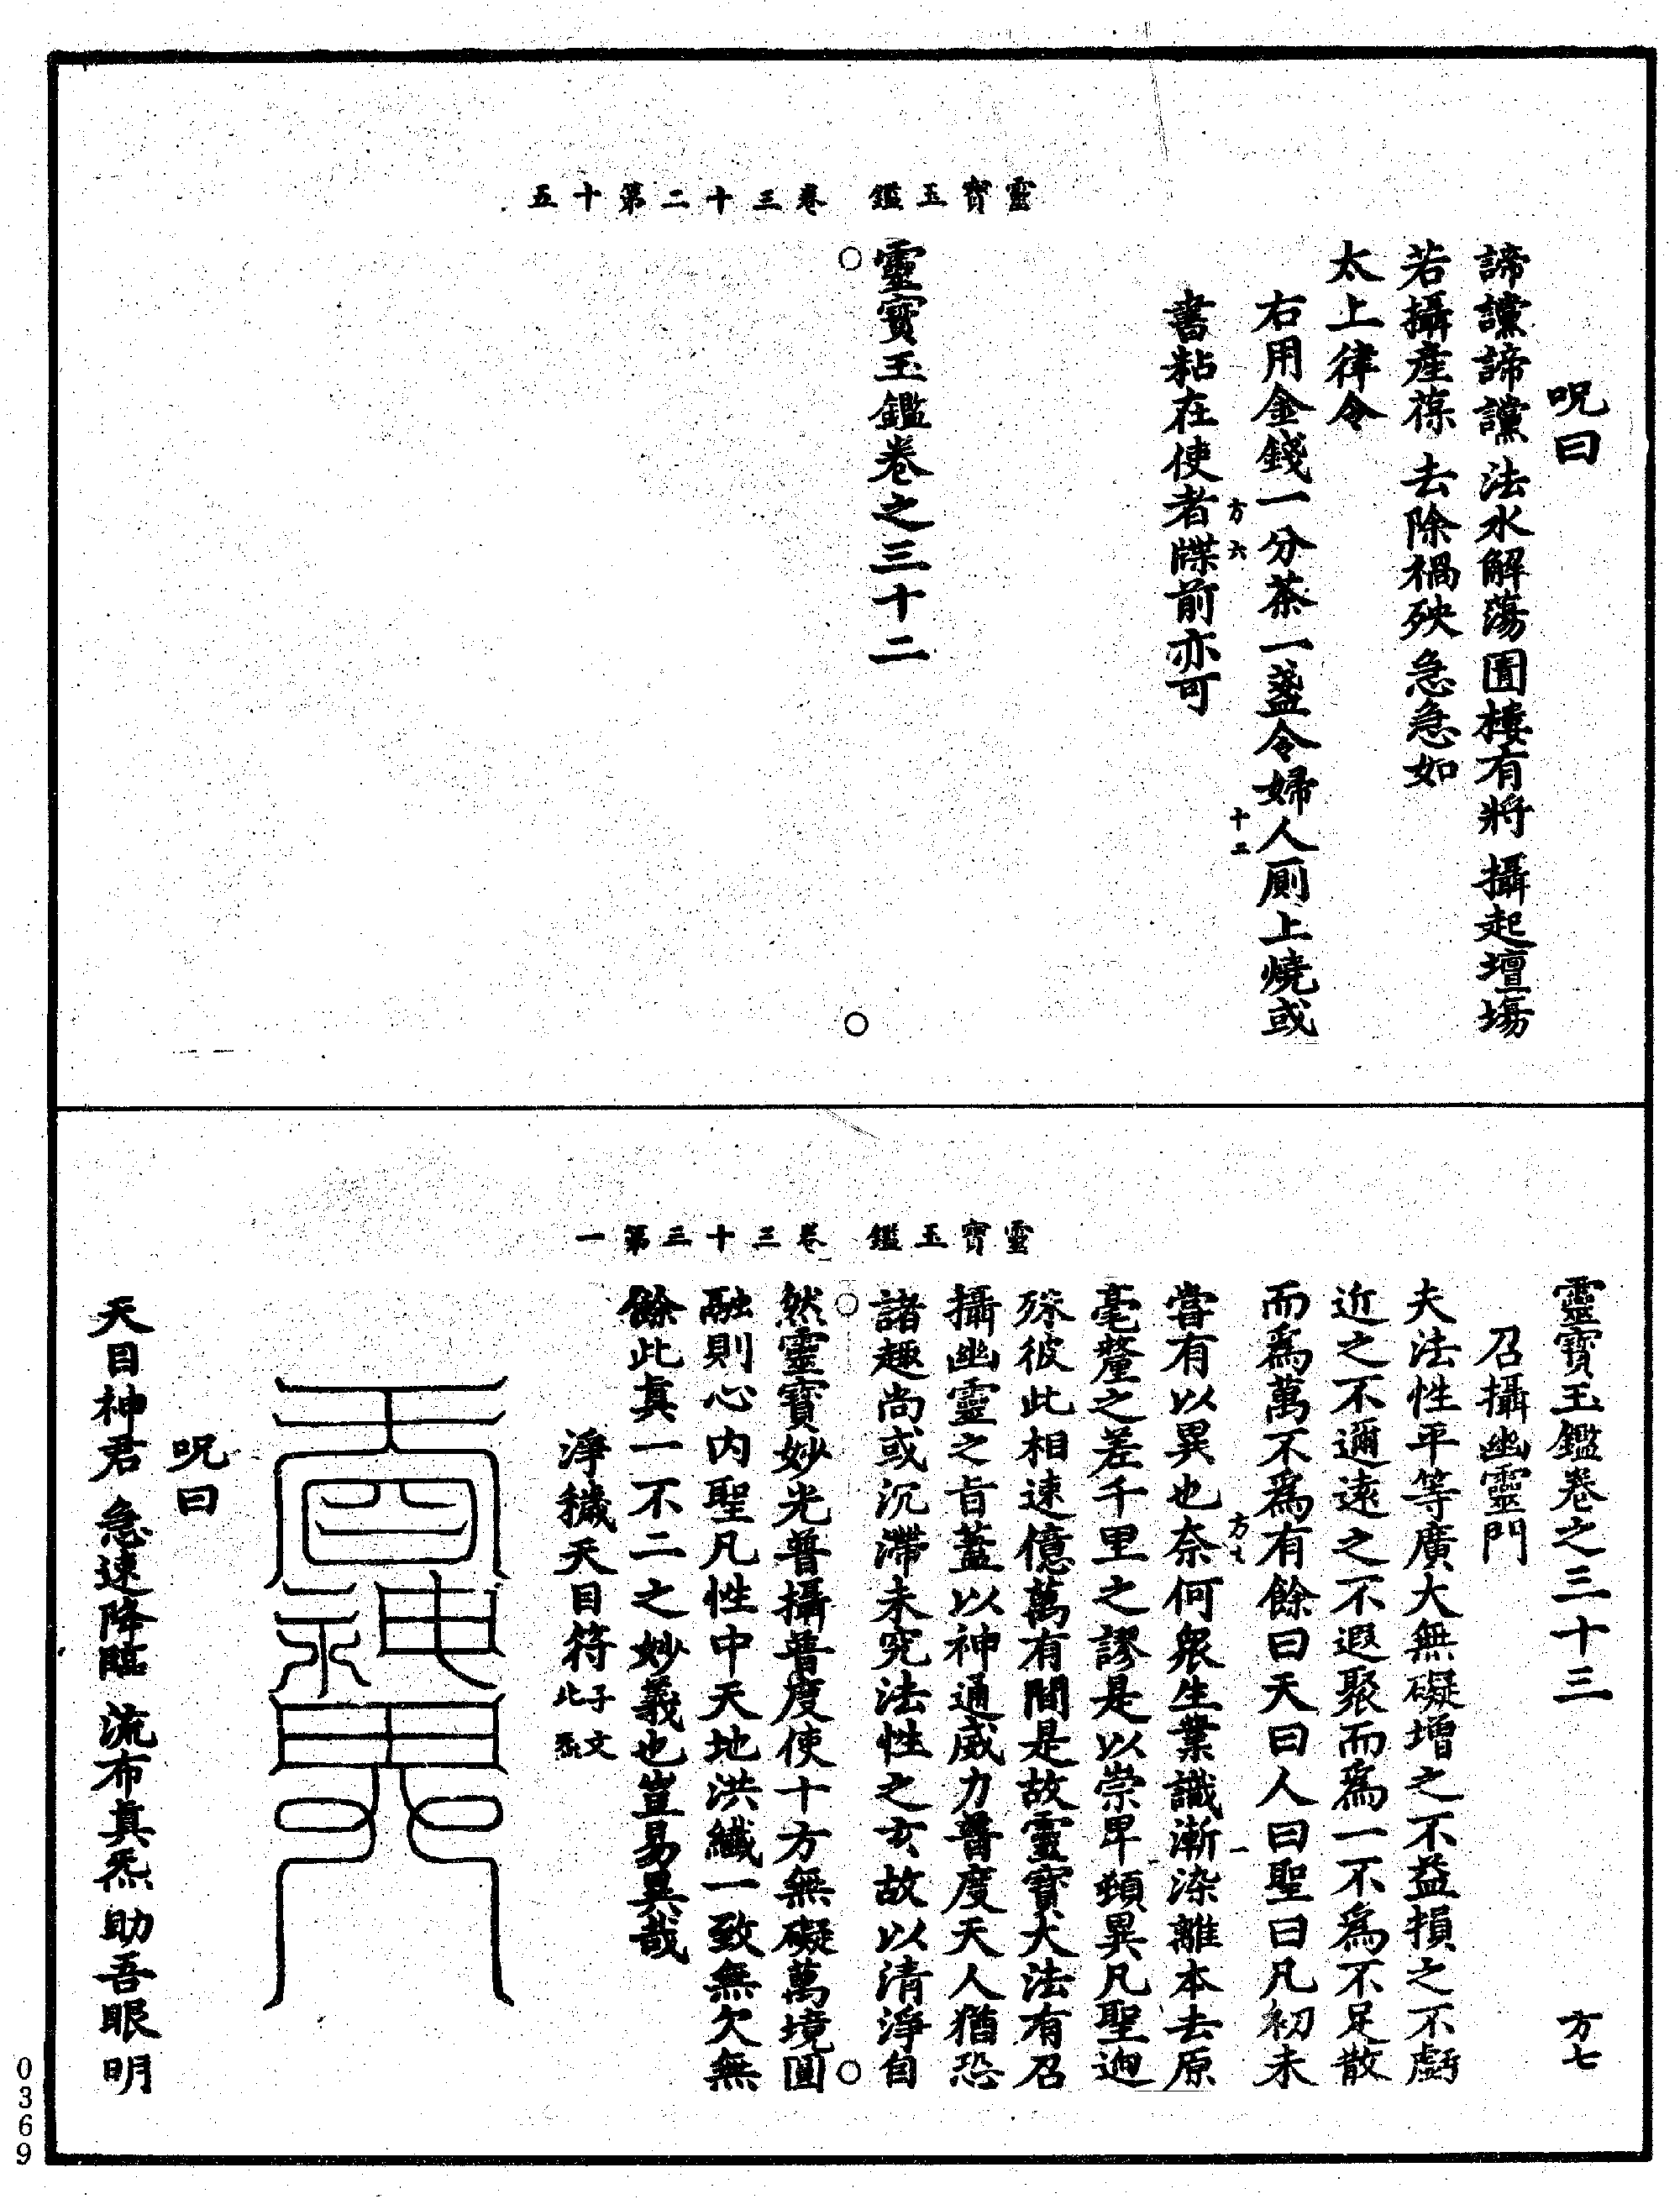 靈寶玉鑑 卷三十二第十五
呪曰
諦讜諦讜 法水解蕩 圊㯫有將 攝起壇場
若攝產葆 去除禍殃 急急如
太上律令
右用金錢一分茶一盞令婦人厠上燒或
方六 十二
書粘在使者牒前亦可
靈寶玉鑑卷之三十二
靈寶玉鑑 卷三十三第一
靈寶玉鑑卷之三十三 方七
召攝幽靈門
夫法性平等廣大無礙增之不益損之不虧
近之不邇遠之不遐聚而爲一不爲不足散
而爲萬不爲有餘曰天曰人曰聖曰凡初未
方七 一
甞有以異也奈何衆生業識漸染離本去原
毫釐之差千里之謬是以崇卑頓異凡聖迥
殊彼此相速億萬有間是故靈寶大法有召
攝幽靈之旨蓋以神通威力普度天人猶恐
諸趣尚或沉滯未究法性之玄故以清淨自
然靈寶妙光普攝普度使十方無礙萬境圓
融則心內聖凡性中天地洪纖一致無欠無
餘此真一不二之妙義也豈易異哉
淨穢天目符 子文此炁
呪曰
天目神君 急速降臨 流布真炁 助吾眼明
0369